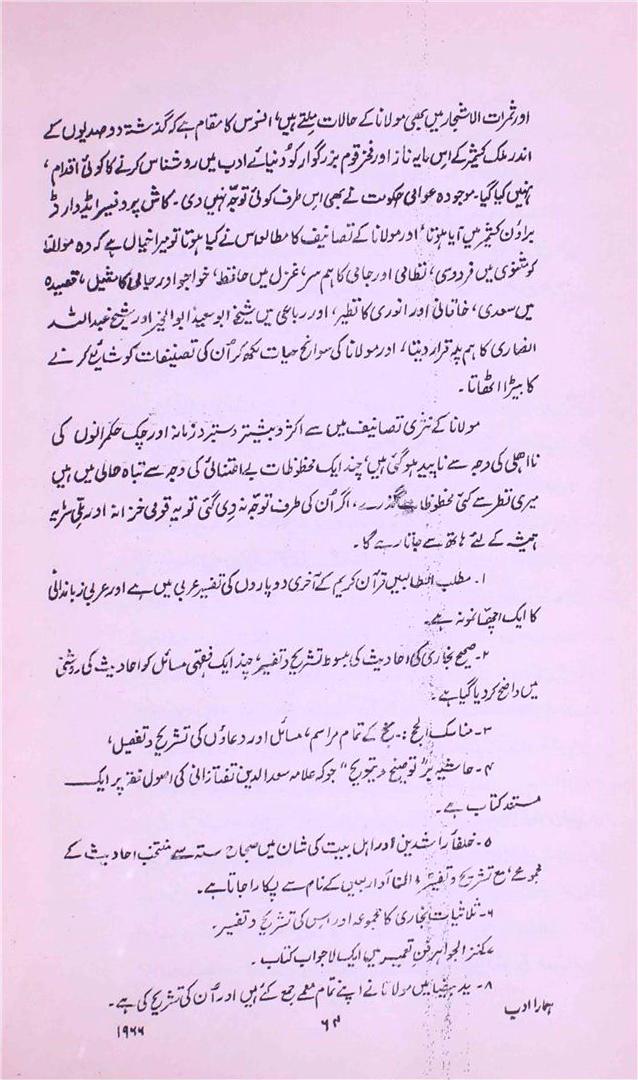 اور ثمرات الاشجار میں بھی مولانا کے حالات ملتے ہیں، افسوس کا مقام ہے کہ گذشتہ دو صدیوں کے
اندر ملک کشمیر کے اس مایہ ناز اور فخر قوم بزرگوار کو دنیائے ادب میں روشناس کرنے کا کوئی اقدام،
نہیں کیا گیا۔ موجودہ عوامی حکومت نے بھی اس طرف کوئی توجہ نہیں دی۔ کاش پروفیسر ایڈوارڈ
براؤن کشمیر میں آیا ہوتا، اور مولانا کے تصانیف کا مطالعہ اس نے کیا ہوتا تو میرا خیال ہے کہ وہ مولانا
کو مثنوی میں فردوسی، نظامی اور جامی کا ہم سر، غزل میں حافظ، خواجو اور جامی کا مثیل، قصیدہ
میں سعدی، خاقانی اور انوری کا نظیر، اور رباعی میں شیخ ابو سعید ابوالخیر اور شیخ عبداللہ
انصاری کا ہم پلہ قرار دیتا، اور مولانا کی سوانح حیات لکھ کر اُن کی تصنیفات کو شائع کرنے
کا بیڑا اٹھاتا۔
مولانا کے نثری تصانیف میں سے اکثر و بیشتر دستبرد زمانہ اور چک حکمرانوں کی
نااہلی کی وجہ سے ناپید ہو گئی ہیں، چند ایک مخطوطات بے اعتنائی کی وجہ سے تباہ حالی میں ہیں
میری نظر سے کئی مخطوطات گذرے، اگر اُن کی طرف توجہ نہ دی گئی تو یہ قومی خزانہ اور ملی سرمایہ
ہمیشہ کے لئے ہاتھ سے جاتا رہے گا۔
۱۔ مطلب الطالبین قرآن کریم کے آخری دو پاروں کی تفسیر عربی میں ہے اور عربی زباندانی
کا ایک اچھا نمونہ ہے۔
۲۔ صحیح بخاری کی احادیث کی مبسوط تشریح و تفسیر، چند ایک فقہی مسائل کو احادیث کی روشنی
میں واضح کر دیا گیا ہے۔
۳۔ مناسک الحج :۔ حج کے تمام مراسم، مسائل اور دعاؤں کی تشریح و تفصیل،
۴۔ حاشیہ بر "توضیح و تلویح" جو کہ علامہ سعد الدین تفتازانی کی اصول فقہ پر ایک
مستند کتاب ہے۔
۵۔ خلفا راشدین اور اہل بیت کی شان میں صحاح ستہ سے منتخب احادیث کے
مجموعے، مع تشریح و تفسیر، اربعین کے نام سے پکارا جاتا ہے۔
۶۔ ثلاثیات بخاری کا مجموعہ اور اس کی تشریح و تفسیر۔
۷ کنز الجواہر فن تعمیر میں ایک لاجواب کتاب۔
۸۔ ید بیضا میں مولانا نے اپنے تمام معمے جمع کئے ہیں اور اُن کی تشریح کی ہے۔
ہمارا ادب
۶۴
۱۹۶۶